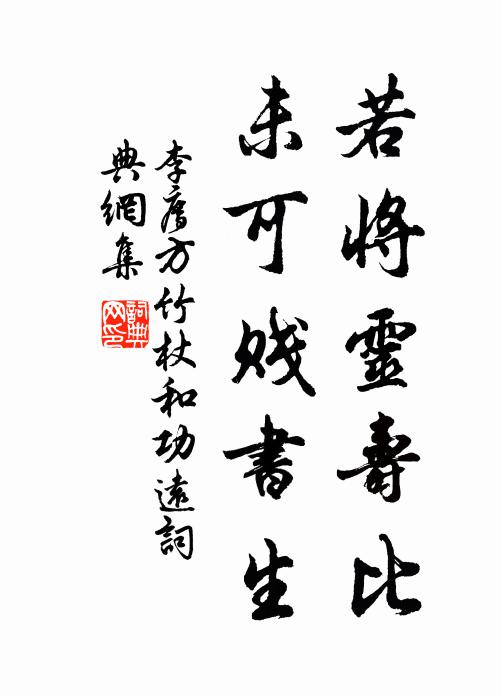 若將靈壽比
未可賤書生
李廌方竹杖和功遠詞
典網集
詞典
网印